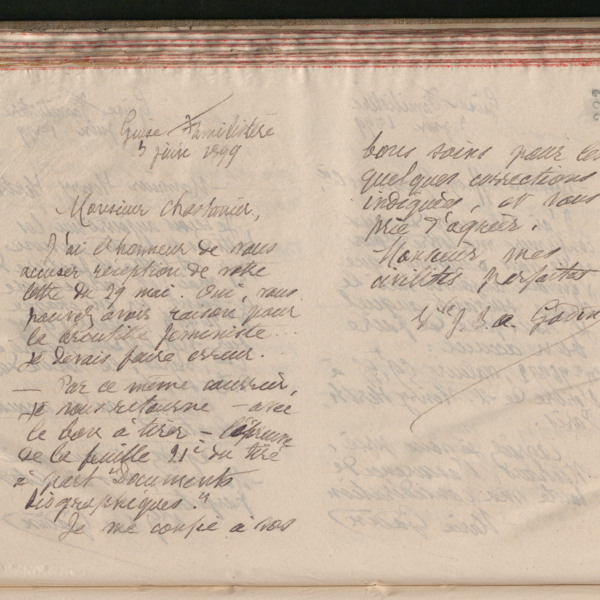 Guise Familistère
3 juin 1899
Monsieur
J'ai l'honneur de vous
accuser réception de votre
lettre du 29 mai. Oui, vous
pouvez avoir raison pour
la feministe
je devais faire erreur.
— Par ce même courrier,
je vous retourne – avec
le bon à tirer – l'épreuve
de la feuille 21e du tiré
à part "Documents
biographiques."
Je me confie à vos
bons soins pour les
quelques corrections
indiquées, et vous
prie d'agréer,
Monsieur, mes
civilités parfaites
Vve J. B. A. Godin